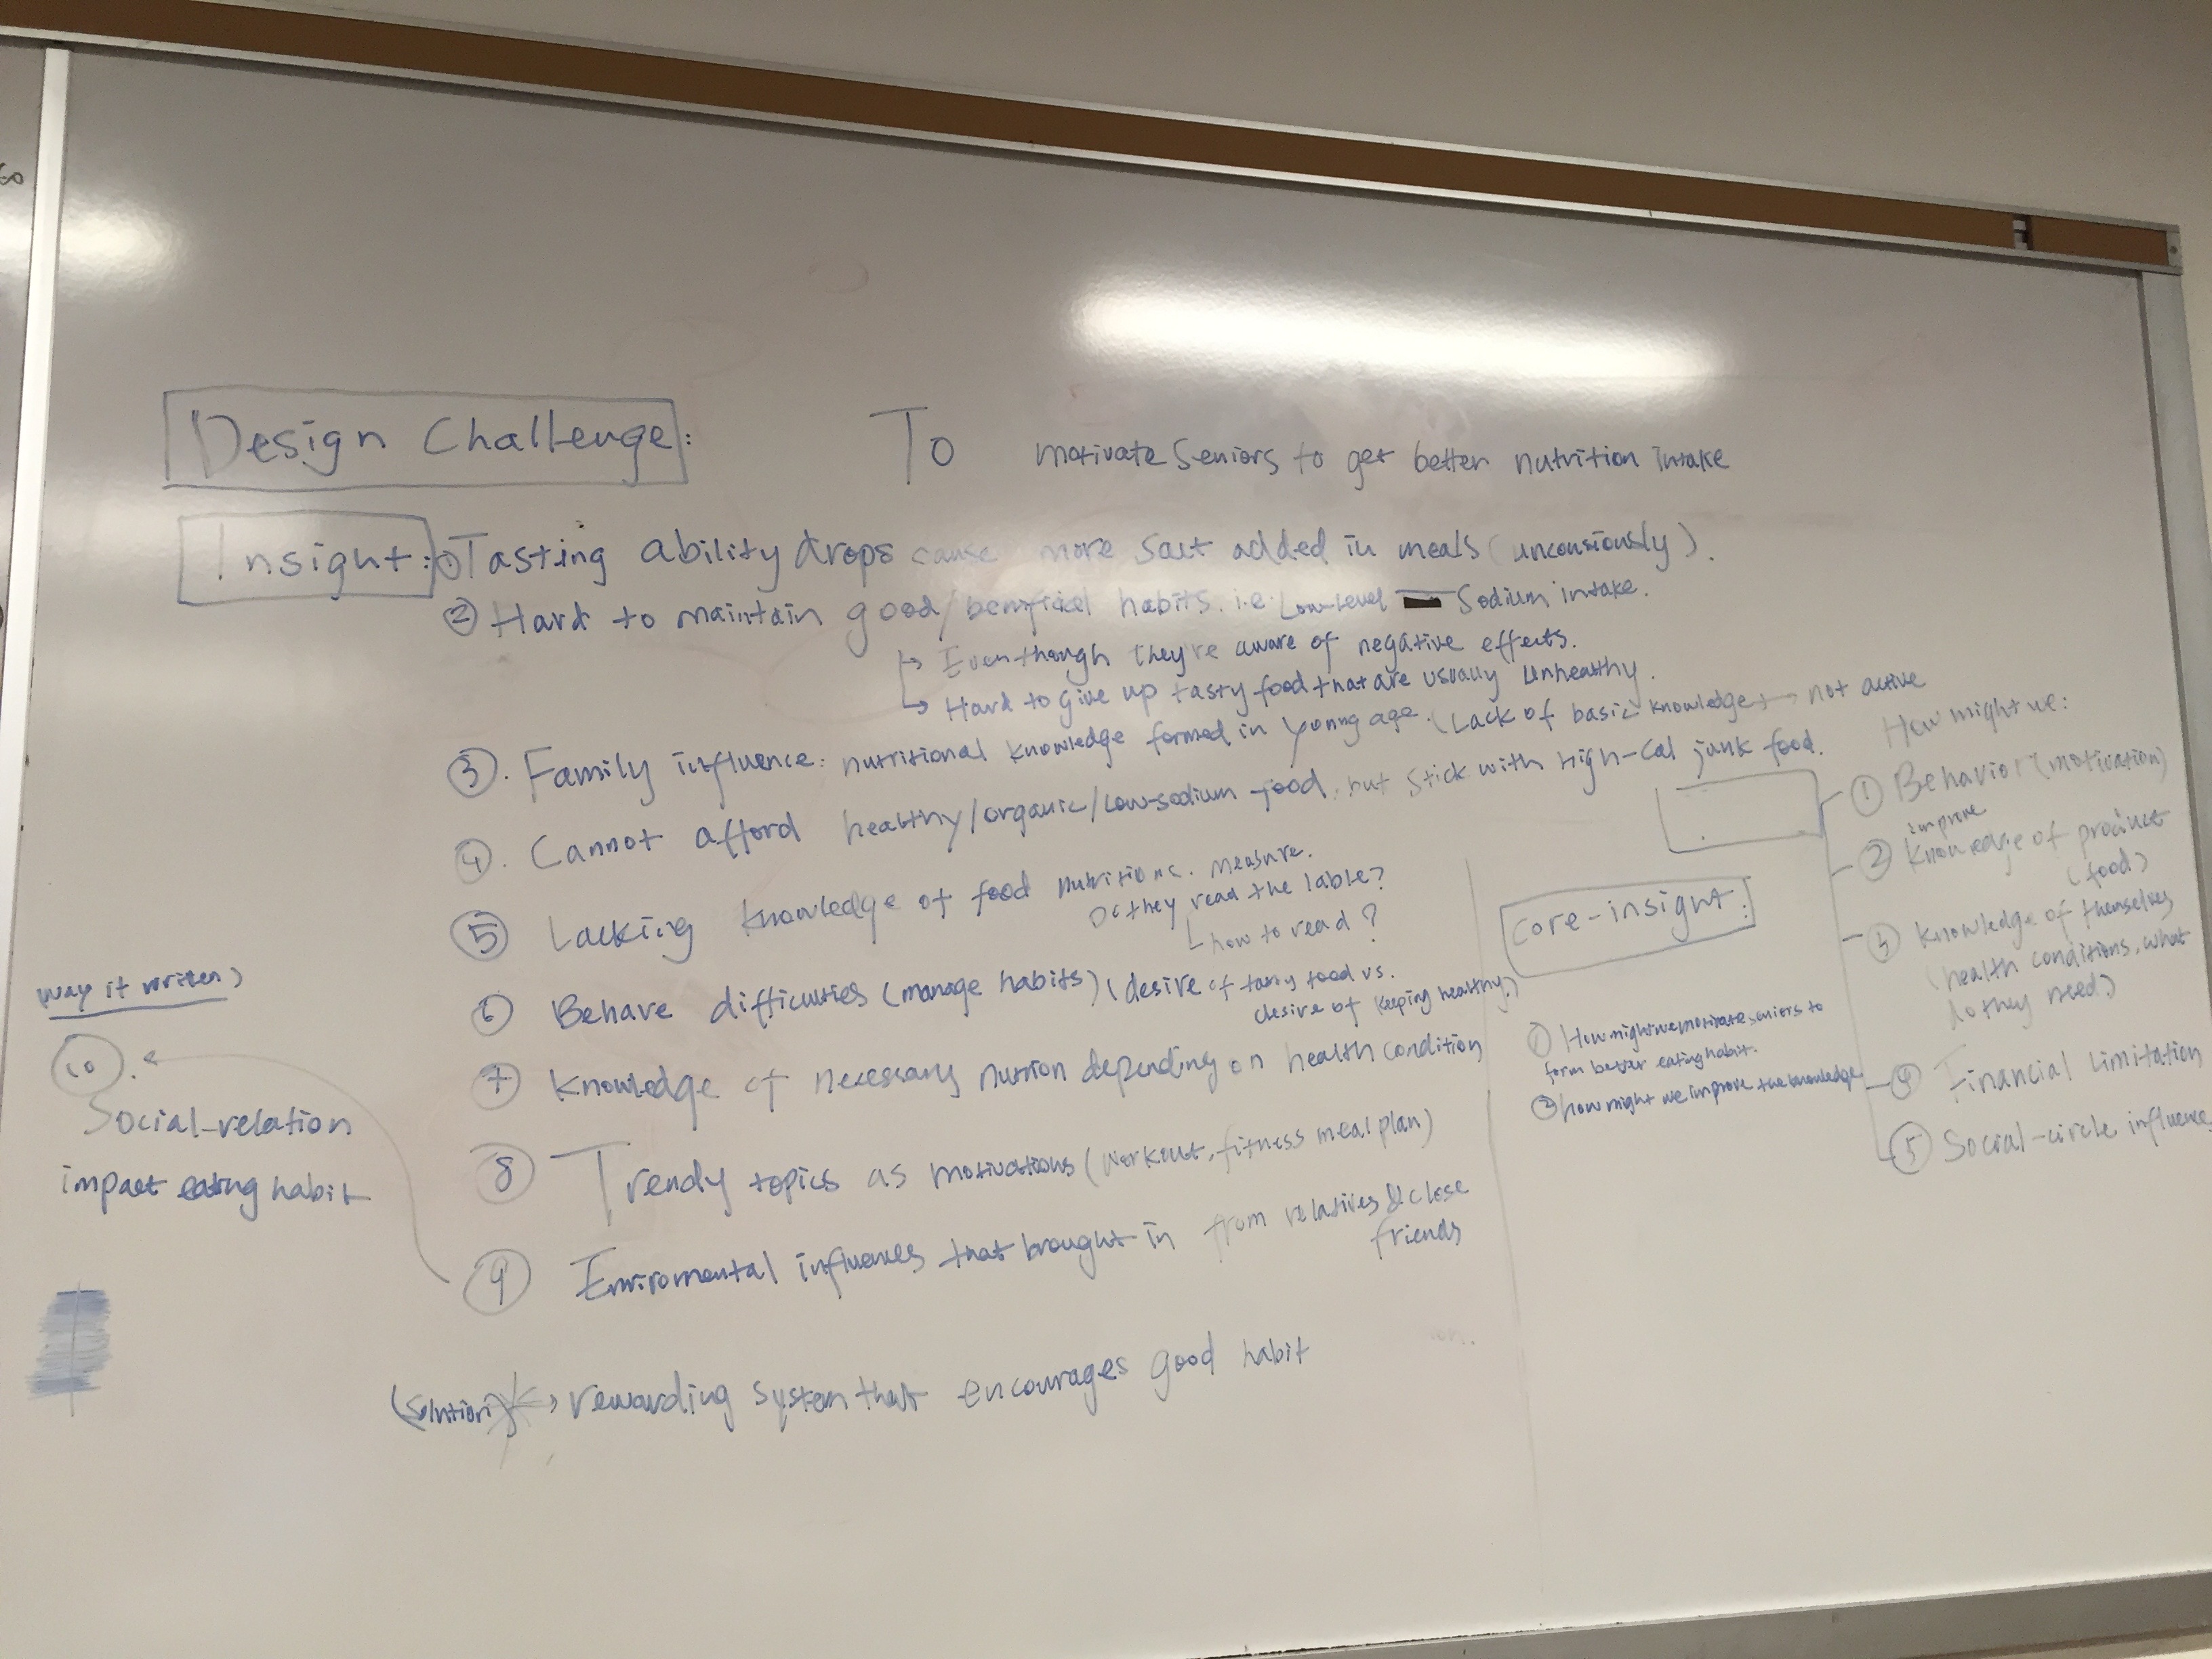 Design Challenge: To motivate Seniors to get better nutrition intake
Insight: ① Tasting ability drops cause more salt added in meals (unconsiously).
② Hard to maintain good/benificial habits. i.e. Low-level Sodium intake.
↳ Eventhough they're aware of negative effects.
↳ Hard to give up tasty food that are usually unhealthy.
③. Family influence: nutritional knowledge formed in young age. (Lack of basic knowledge) → not active
④. Cannot afford healthy/organic/low-sodium food, but stick with high-cal junk food.
⑤ Lacking knowledge of food nutritions. measure.
Do they read the lable?
how to read?
⑥ Behave difficulties (manage habits) (desire of tasty food vs.
desire of keeping healthy.)
⑦ knowledge of necessary nutrion depending on health condition
⑧ Trendy topics as motivations (workout, fitness meal plan)
⑨ Enviromental influences that brought in from relatives & close
friends
(solution) → rewarding system that encourages good habit
way it written)
⑩.
Social-relation
impact eating habit
Core-insight:
① How might we motivate seniors to
form better eating habit.
② how might we improve the knowledge
How might we:
① Behavior (motivation)
improve
② knowledge of product
(food)
③ knowledge of themselves
(health conditions, what
do they need)
④ Financial limitation
⑤ Social-circle influence